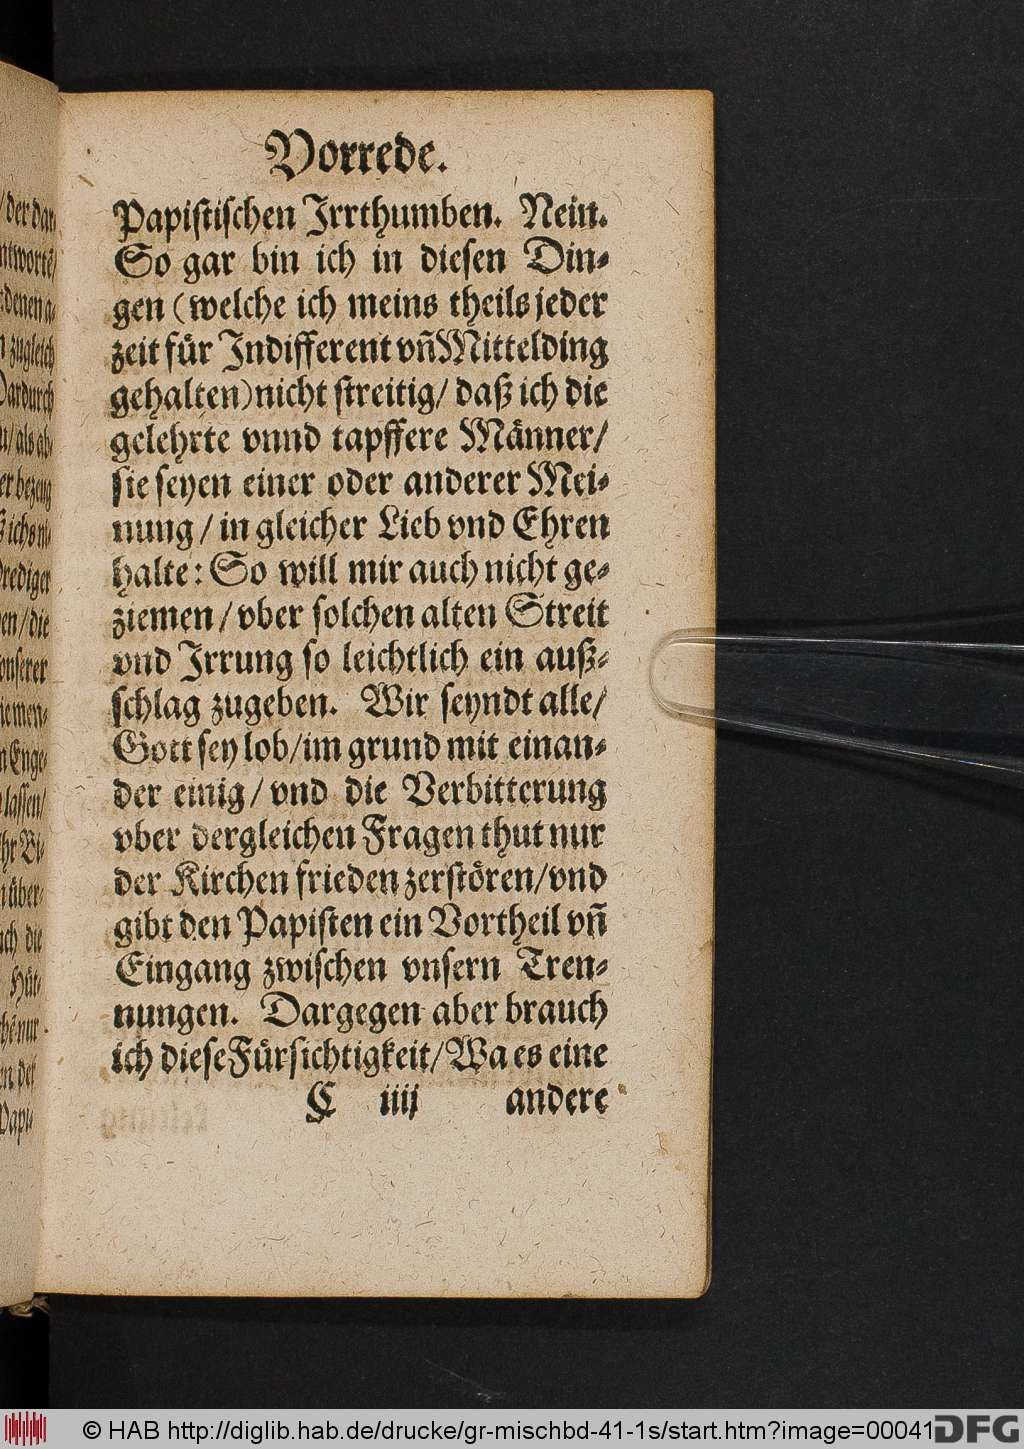 Vorrede.
Papistischen Irrthumben. Nein.
So gar bin ich in diesen Din-
gen (welche ich meins theils jeder
zeit für Indifferent vñ Mittelding
gehalten) nicht streitig/ daß ich die
gelehrte vnnd tapffere Männer/
sie seyen einer oder anderer Mei-
nung / in gleicher Lieb vnd Ehren
halte: So will mir auch nicht ge-
ziemen / vber solchen alten Streit
vnd Irrung so leichtlich ein auß-
schlag zugeben. Wir seyndt alle/
Gott sey lob/ im grund mit einan-
der einig / vnd die Verbitterung
vber dergleichen Fragen thut nur
der Kirchen frieden zerstören/ vnd
gibt den Papisten ein Vortheil vñ
Eingang zwischen vnsern Tren-
nungen. Dargegen aber brauch
ich diese Fürsichtigkeit/ Wa es eine
C iiij andere
© HAB http://diglib.hab.de/drucke/gr-mischbd-41-1s/start.htm?image=00041
DFG